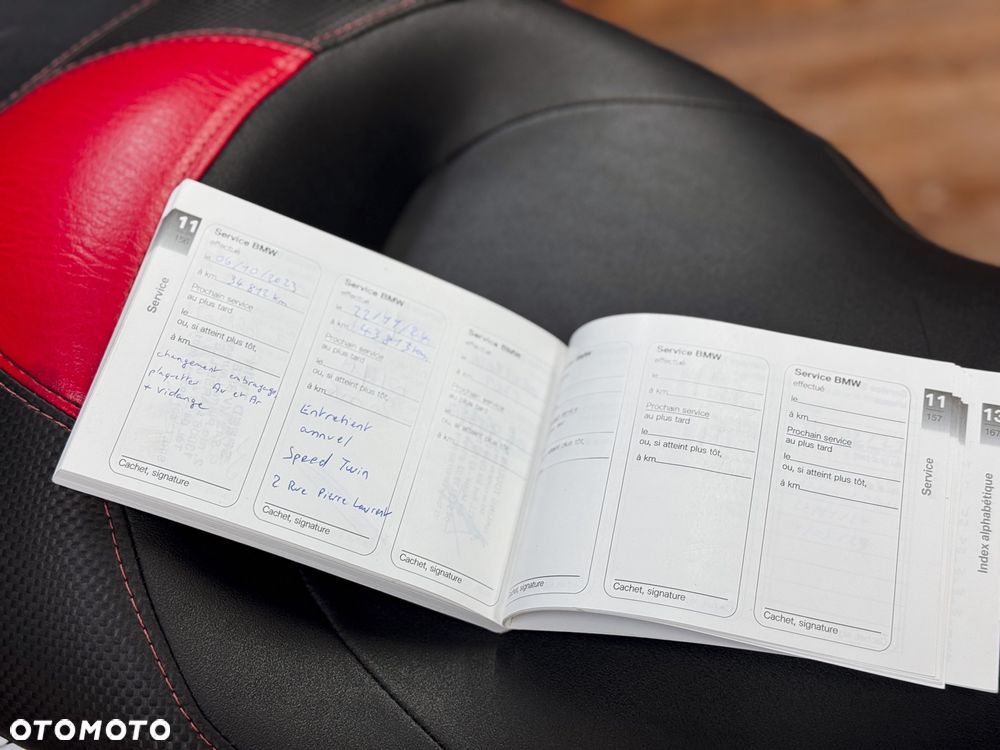 11
156
Service
Service BMW
effectué
le 06/10/2023
à km 34 892 km
Prochain service
au plus tard
le
ou, si atteint plus tôt,
à km
changement embrayage,
plaquettes Av et Ar
+ vidange
Cachet, signature
Service BMW
effectué
le 22/11/24
à km 43 813 km
Prochain service
au plus tard
le
ou, si atteint plus tôt,
à km
Entretient
annuel
Speed Twin
2 Rue Pierre Laurent
Cachet, signature
Service BMW
effectué
le
à km
Prochain service
au plus tard
le
ou, si atteint plus tôt,
à km
Cachet, signature
Service BMW
effectué
le
à km
Prochain service
au plus tard
le
ou, si atteint plus tôt,
à km
Cachet, signature
Service BMW
effectué
le
à km
Prochain service
au plus tard
le
ou, si atteint plus tôt,
à km
Cachet, signature
11
157
Service
13
167
Index alphabétique
OTOMOTO